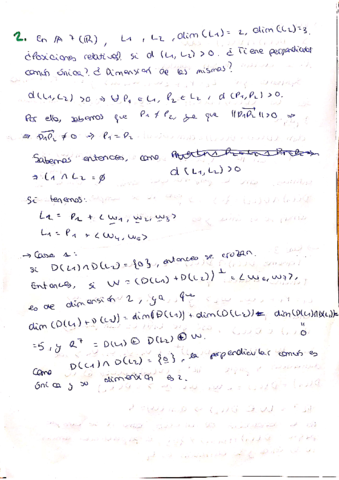 2. En A^7(ℝ), L1, L2, dim(L1)=2, dim(L2)=3.
¿Posiciones relativas si d(L1,L2)>0. ¿Tiene perpendicular
común única? ¿Dimensión de las mismas?
d(L1,L2)>0 → ∀ P1 ∈ L1, P2 ∈ L2, d(P1,P2)>0.
Por ello, sabemos que P1 ≠ P2, ya que ||P1P2||>0 ⇒
⇒ P1P2 ≠ 0 → P1 = P2
Sabemos entonces, como
d(L1,L2)>0
⇒ L1 ∩ L2 = ∅
Si tenemos:
L2 = P2 + <w1, w2, w3>
L1 = P1 + <w4, w5>
→ Caso 1:
Si D(L1)∩D(L2)={0}, entonces se cruzan.
Entonces, si W = (D(L1)+D(L2))^⊥ = <w6, w7>,
es de dimensión 2, ya que
dim(D(L1)+D(L2)) = dim(D(L1)) + dim(D(L2)) - dim(D(L1)∩D(L2))=
"
0
=5, y R^7 = D(L1) ⊕ D(L2) ⊕ W.
Como D(L1) ∩ D(L2) = {0}, la perpendicular común es
única y su dimensión es 2.